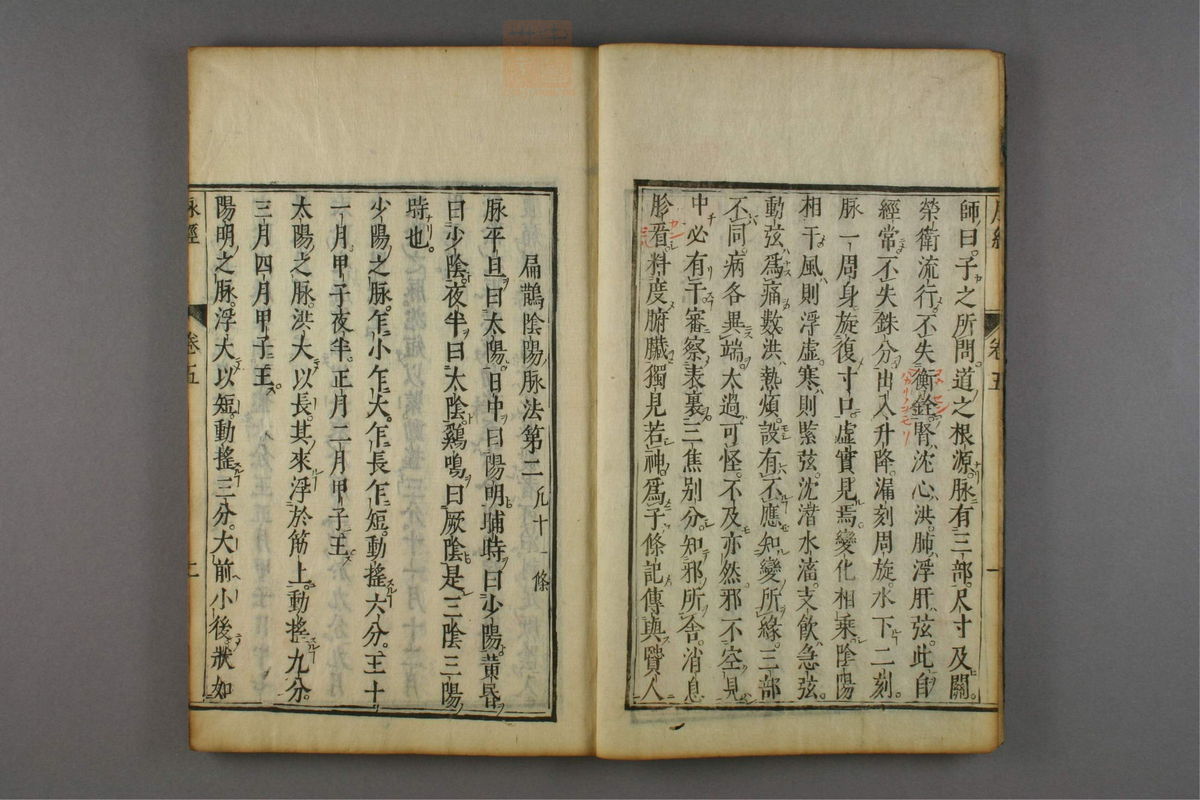 師曰子之所問道之根源脉有三部尺寸及關
榮衛流行不失衡銓腎沈心洪肺浮肝弦此自
經常不失銖分出入升降漏刻周旋水下二刻
脉一周身旋復寸口虛實見焉變化相乘陰陽
相干風則浮虛寒則緊弦沈潜水滀支飲急弦
動弦爲痛數洪熱煩設有不應知變所緣三部
不同病各異端太過可怪不及亦然邪不空見
中必有干審察表裏三焦別分知邪所舍消息
胗看料度腑臟獨見若神爲子條記傳與賢人
脉經
卷五
一
扁鵲陰陽脉法第二 凡十一條
脉平旦曰太陽日中曰陽明晡時曰少陽黃昏
曰少陰夜半曰太陰鷄鳴曰厥陰是三陰三陽
時也
少陽之脉乍小乍大乍長乍短動搖六分王十
一月甲子夜半正月二月甲子王
太陽之脉洪大以長其來浮於筋上動搖九分
三月四月甲子王
陽明之脉浮大以短動搖三分大前小後狀如
脉經
卷五
二